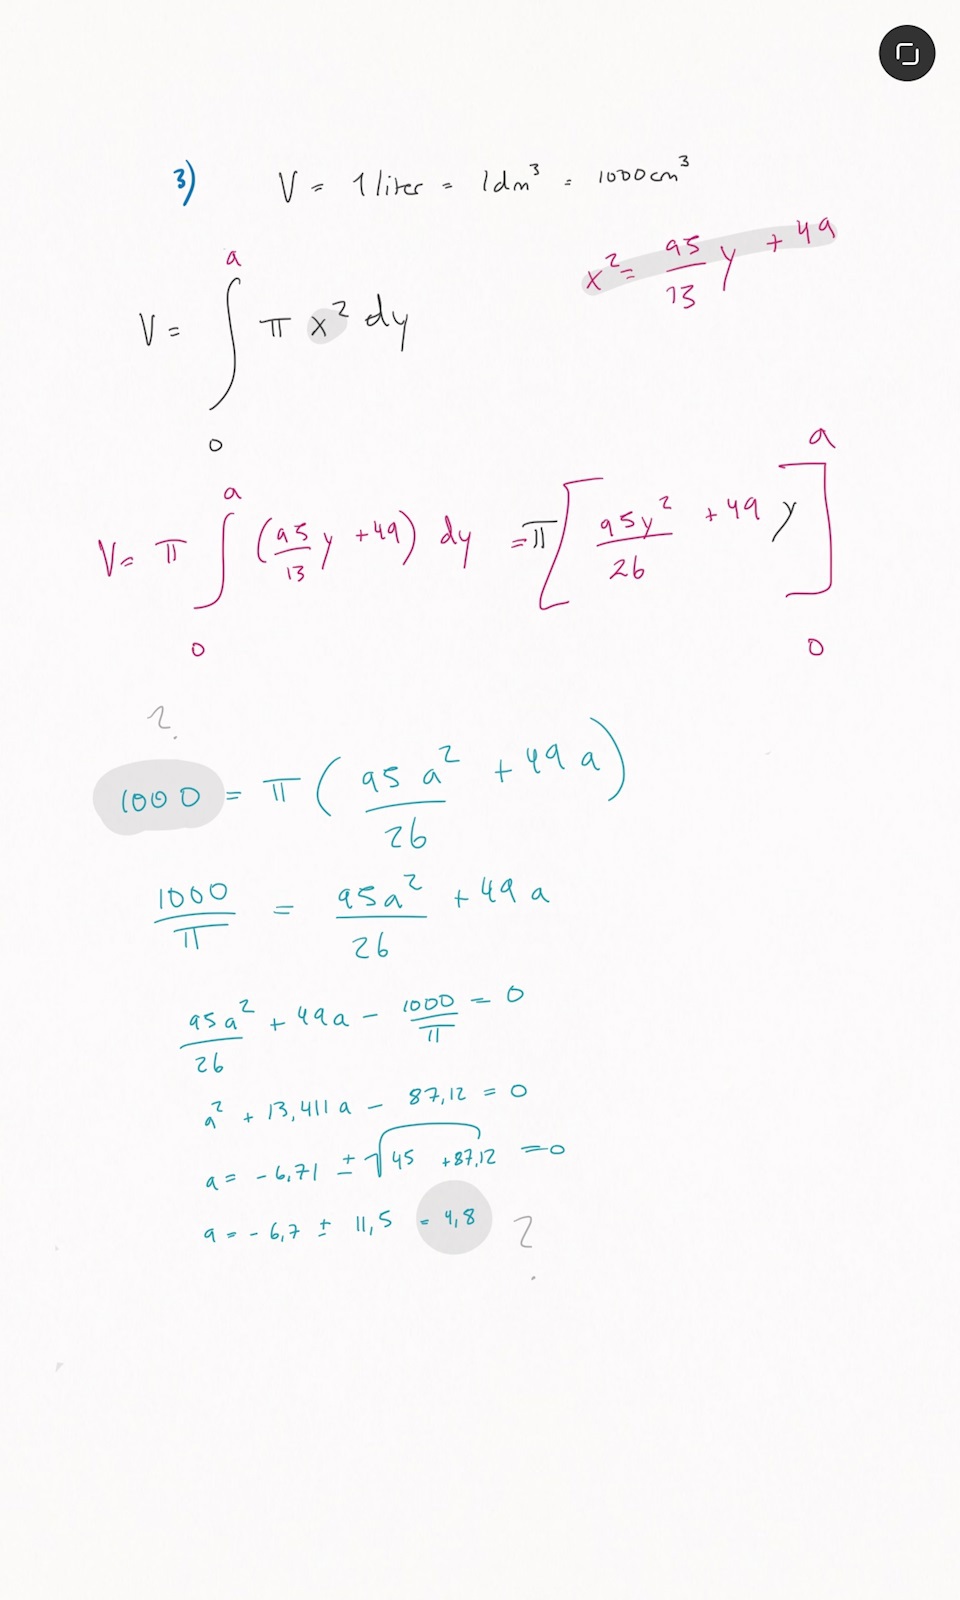 3) V = 1 liter = 1dm³ = 1000cm³
x² = 95/13 y + 49
V = ∫₀ᵃ π x² dy
V = π ∫₀ᵃ (95/13 y + 49) dy = π [95y²/26 + 49 y]₀ᵃ
?
1000 = π (95a²/26 + 49a)
1000/π = 95a²/26 + 49a
95a²/26 + 49a - 1000/π = 0
a² + 13,411a - 87,12 = 0
a = -6,71 ± √45 +87,12 = 0
a = -6,7 ± 11,5 = 4,8 ?